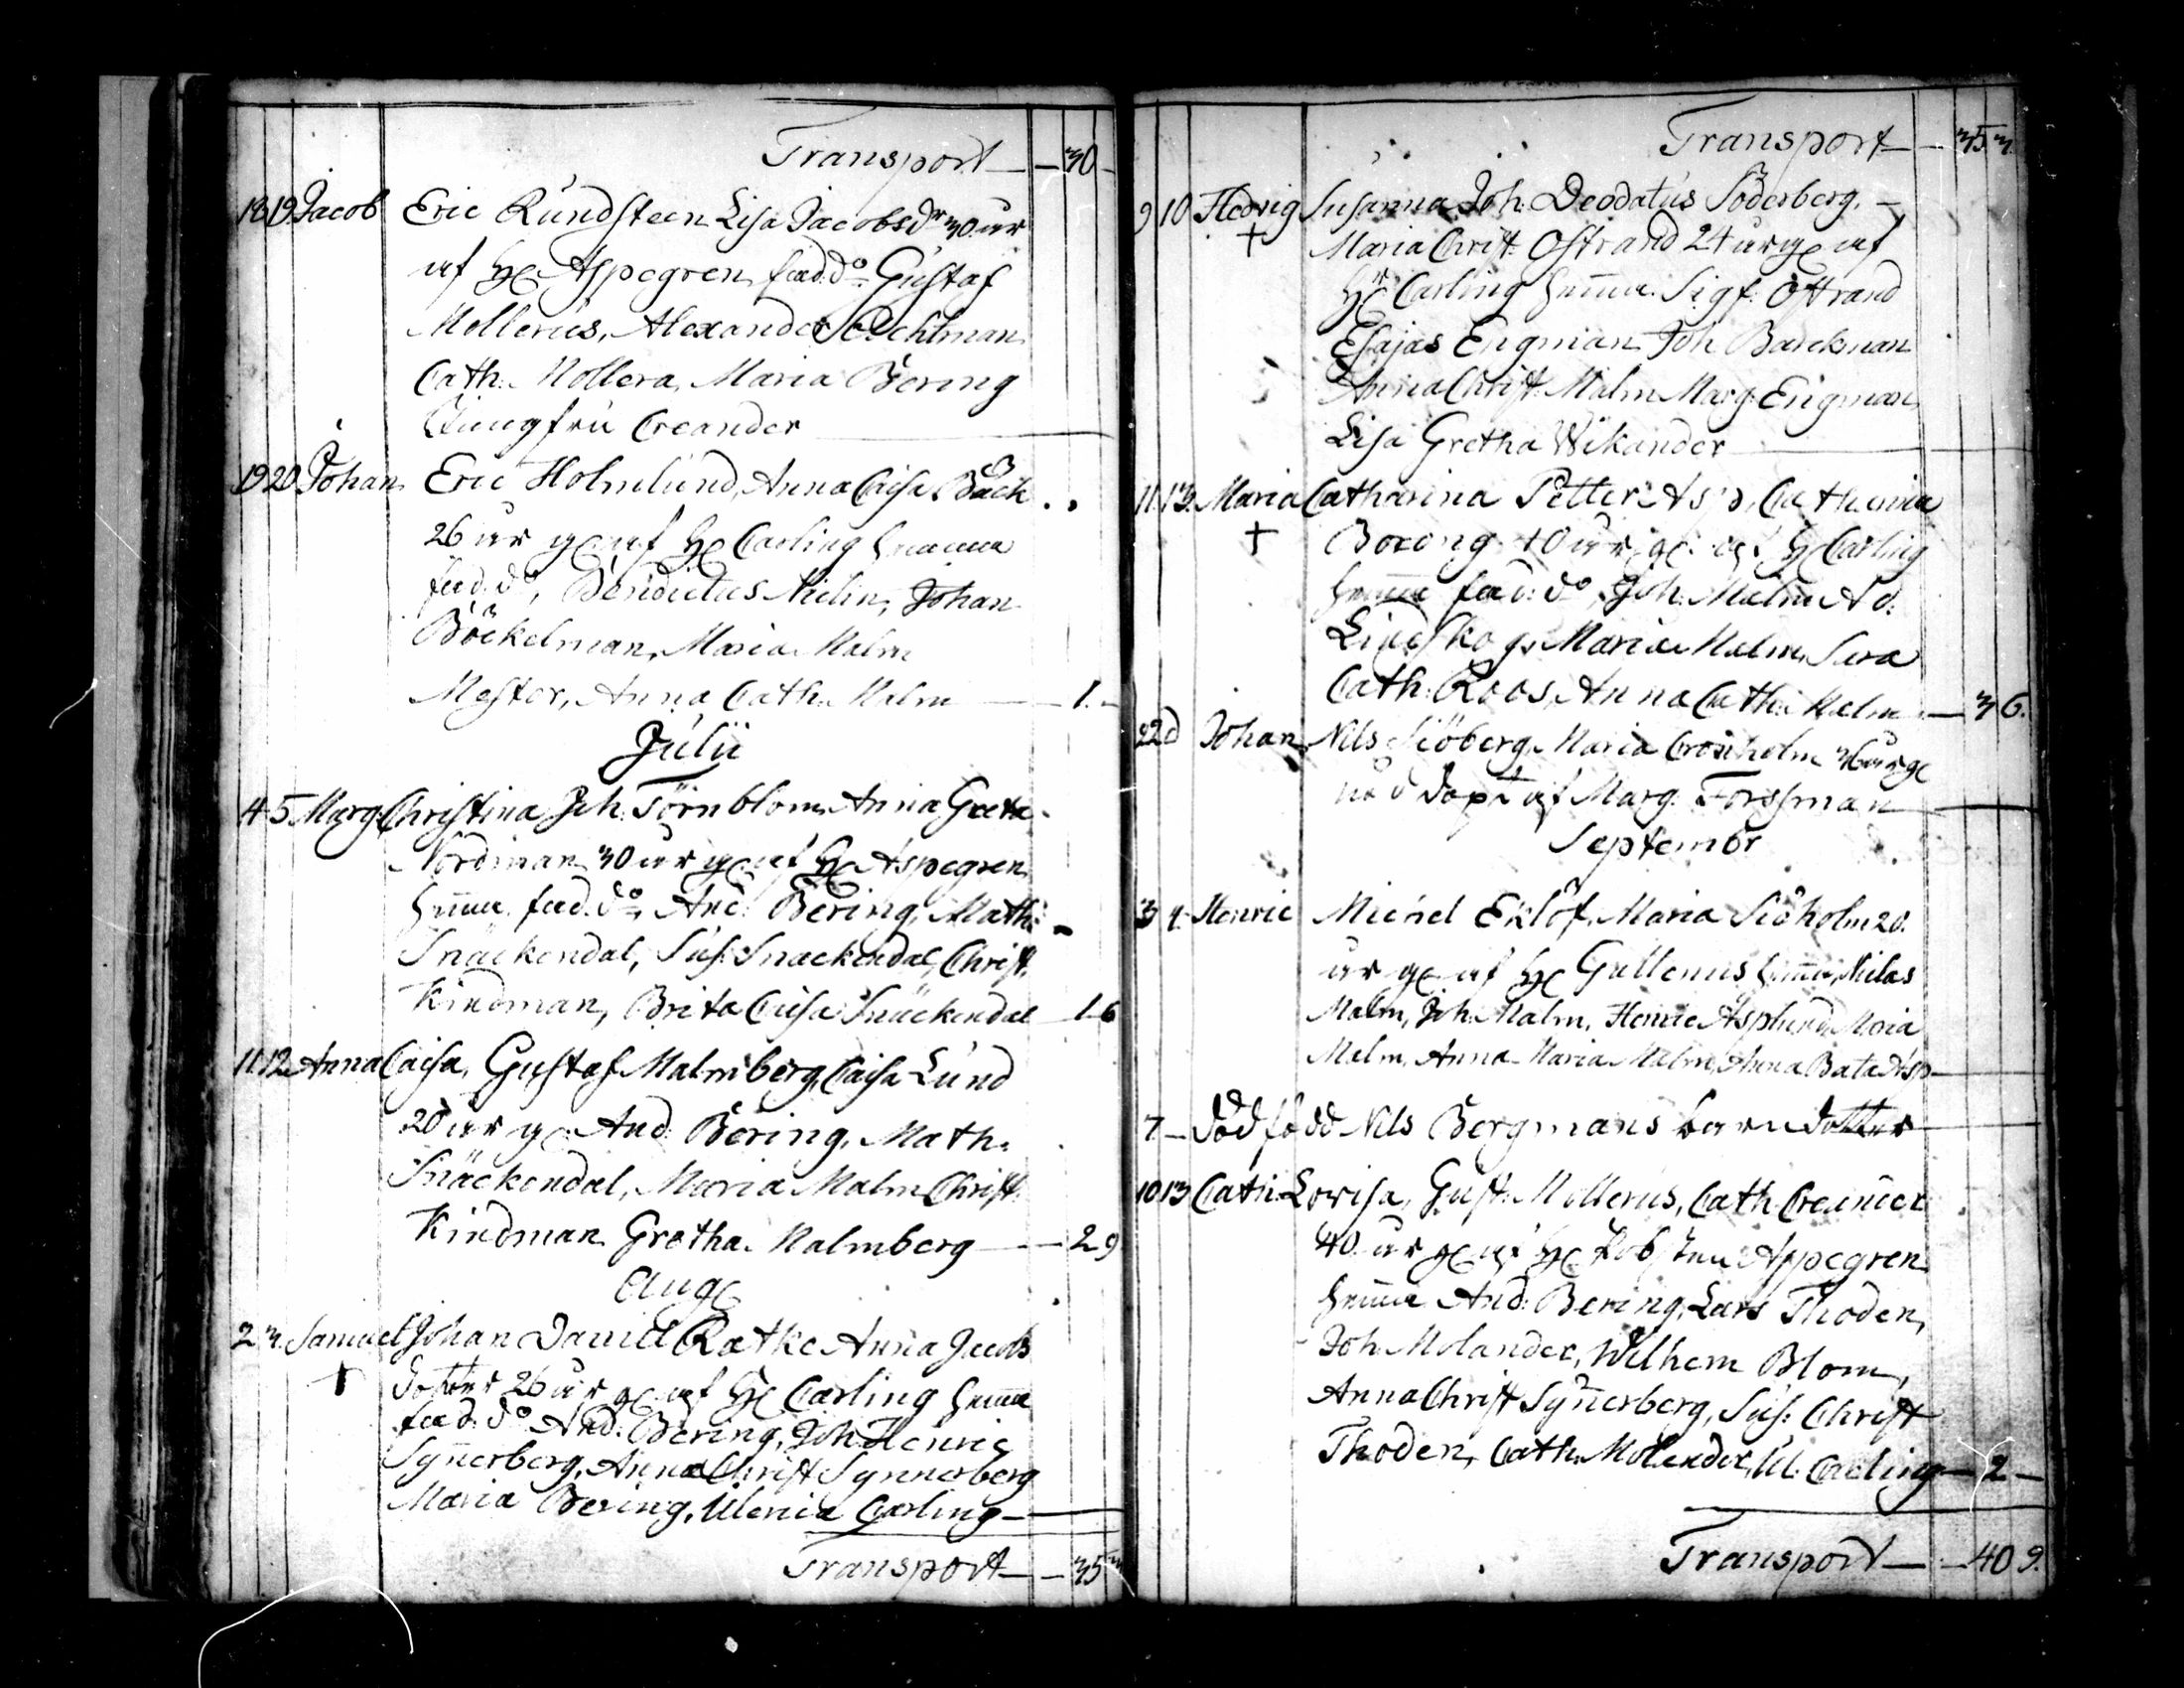 Transport — 30 —
18 19 Jacob Eric Rundsteen Lisa Jacobsdr 30 år
af H Aspegren fad. do Gustaf
Mollerus, Alexander Æchtman
Cath. Mollera, Maria Bering
Jungfru Creander
19 20 Johan Eric Holmlund, Anna Caisa Bäck
26 år g af H Carling hemma
fad. do, Benedictus Nielin, Johan
Böckelman, Maria Malm
Mester, Anna Cath. Malm — 1. —
Julii
4 5 Marg. Christina Joh. Törnblom Anna Greta
Nordman 30 år g af H Aspegren
hemma fad. do And. Bering, Math.
Snäckendal, Sus. Snäckendal, Christ.
Kindman, Brita Caisa Snäckendal 1 6
11 12 Anna Caisa, Gustaf Malmberg, Caisa Lund
20 år g And. Bering, Math.
Snäckendal, Maria Malm Christ.
Kindman Gretha Malmberg — 2 9
Aug
2 3. Samuel Johan David Ratke Anna Jacobs
† dotter 26 år g af H Carling hemma
fad. do And. Bering, Joh. Henric
Synnerberg, Anna Christ Synnerberg
Maria Bering, Ulerica Carling —
Transport — 35 3
Transport — 35 3.
9 10 Hedvig Susanna Joh. Deodatus Söderberg. —
† Maria Christ. Ostrand 24 år g af
Hr Carling hemma. Sigf. Östrand
Esajas Engman Joh Barckman
Anna Christ. Malm Marg. Engman
Lisa Gretha Wikander
11 13. Maria Catharina Petter Asp, Catharina
† Boeong 40 år g af H Carling
hemma fad. do Joh. Malm Ad.
Lindskog, Maria Malm, Sara
Cath. Roos, Anna Cath. Malm — 3 6.
22 d Johan Nils Siöberg Maria Cronholm 36 år g
nöd döpt af Marg. Forssman
Septembr
3 4. Henric Michel Eklöf, Maria Siöholm 20.
år g af H Gallenius hemma, Niclas
Malm, Joh. Malm, Henric Asplund Maria
Malm, Anna Maria Malm, Anna Beata Asp
7 — död född Nils Bergmans barn dotter
10 13 Cath. Lovisa, Gust. Mollerus, Cath Creander
40 år g af H Aspegren
hemma And. Bering, Lars Thoden,
Joh. Molander, Wilhem Blom,
Anna Christ Synnerberg, Sus. Christ
Thoden, Cath. Molander, Ul. Carling — 2 —
Transport — 40 9.